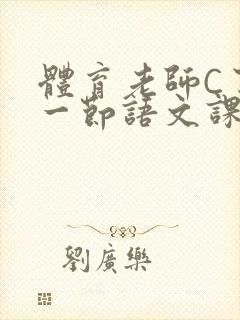 體育老師C
一節語文課
劉廣樂